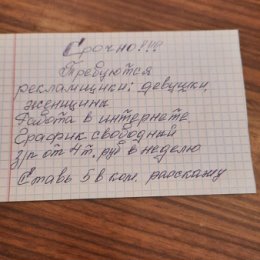 Срочно!!!
Требуются
рекламщики: девушки,
женщины
Работа в интернете
График свободный
з/р от 4 т. руб в неделю
Ставь 5 в ком. расскажу